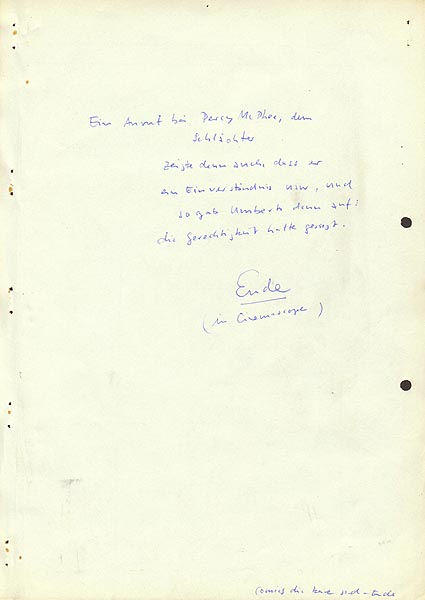 Ein Anruf bei Percy McPhee, dem
Schlächter
zeigte denn auch, dass er
ein Einverständnis war, und
so gab Umberto dann auf:
die Gerechtigkeit hatte gesiegt.
Ende
(in Cinemascope)
Comics die keine sind - Ende